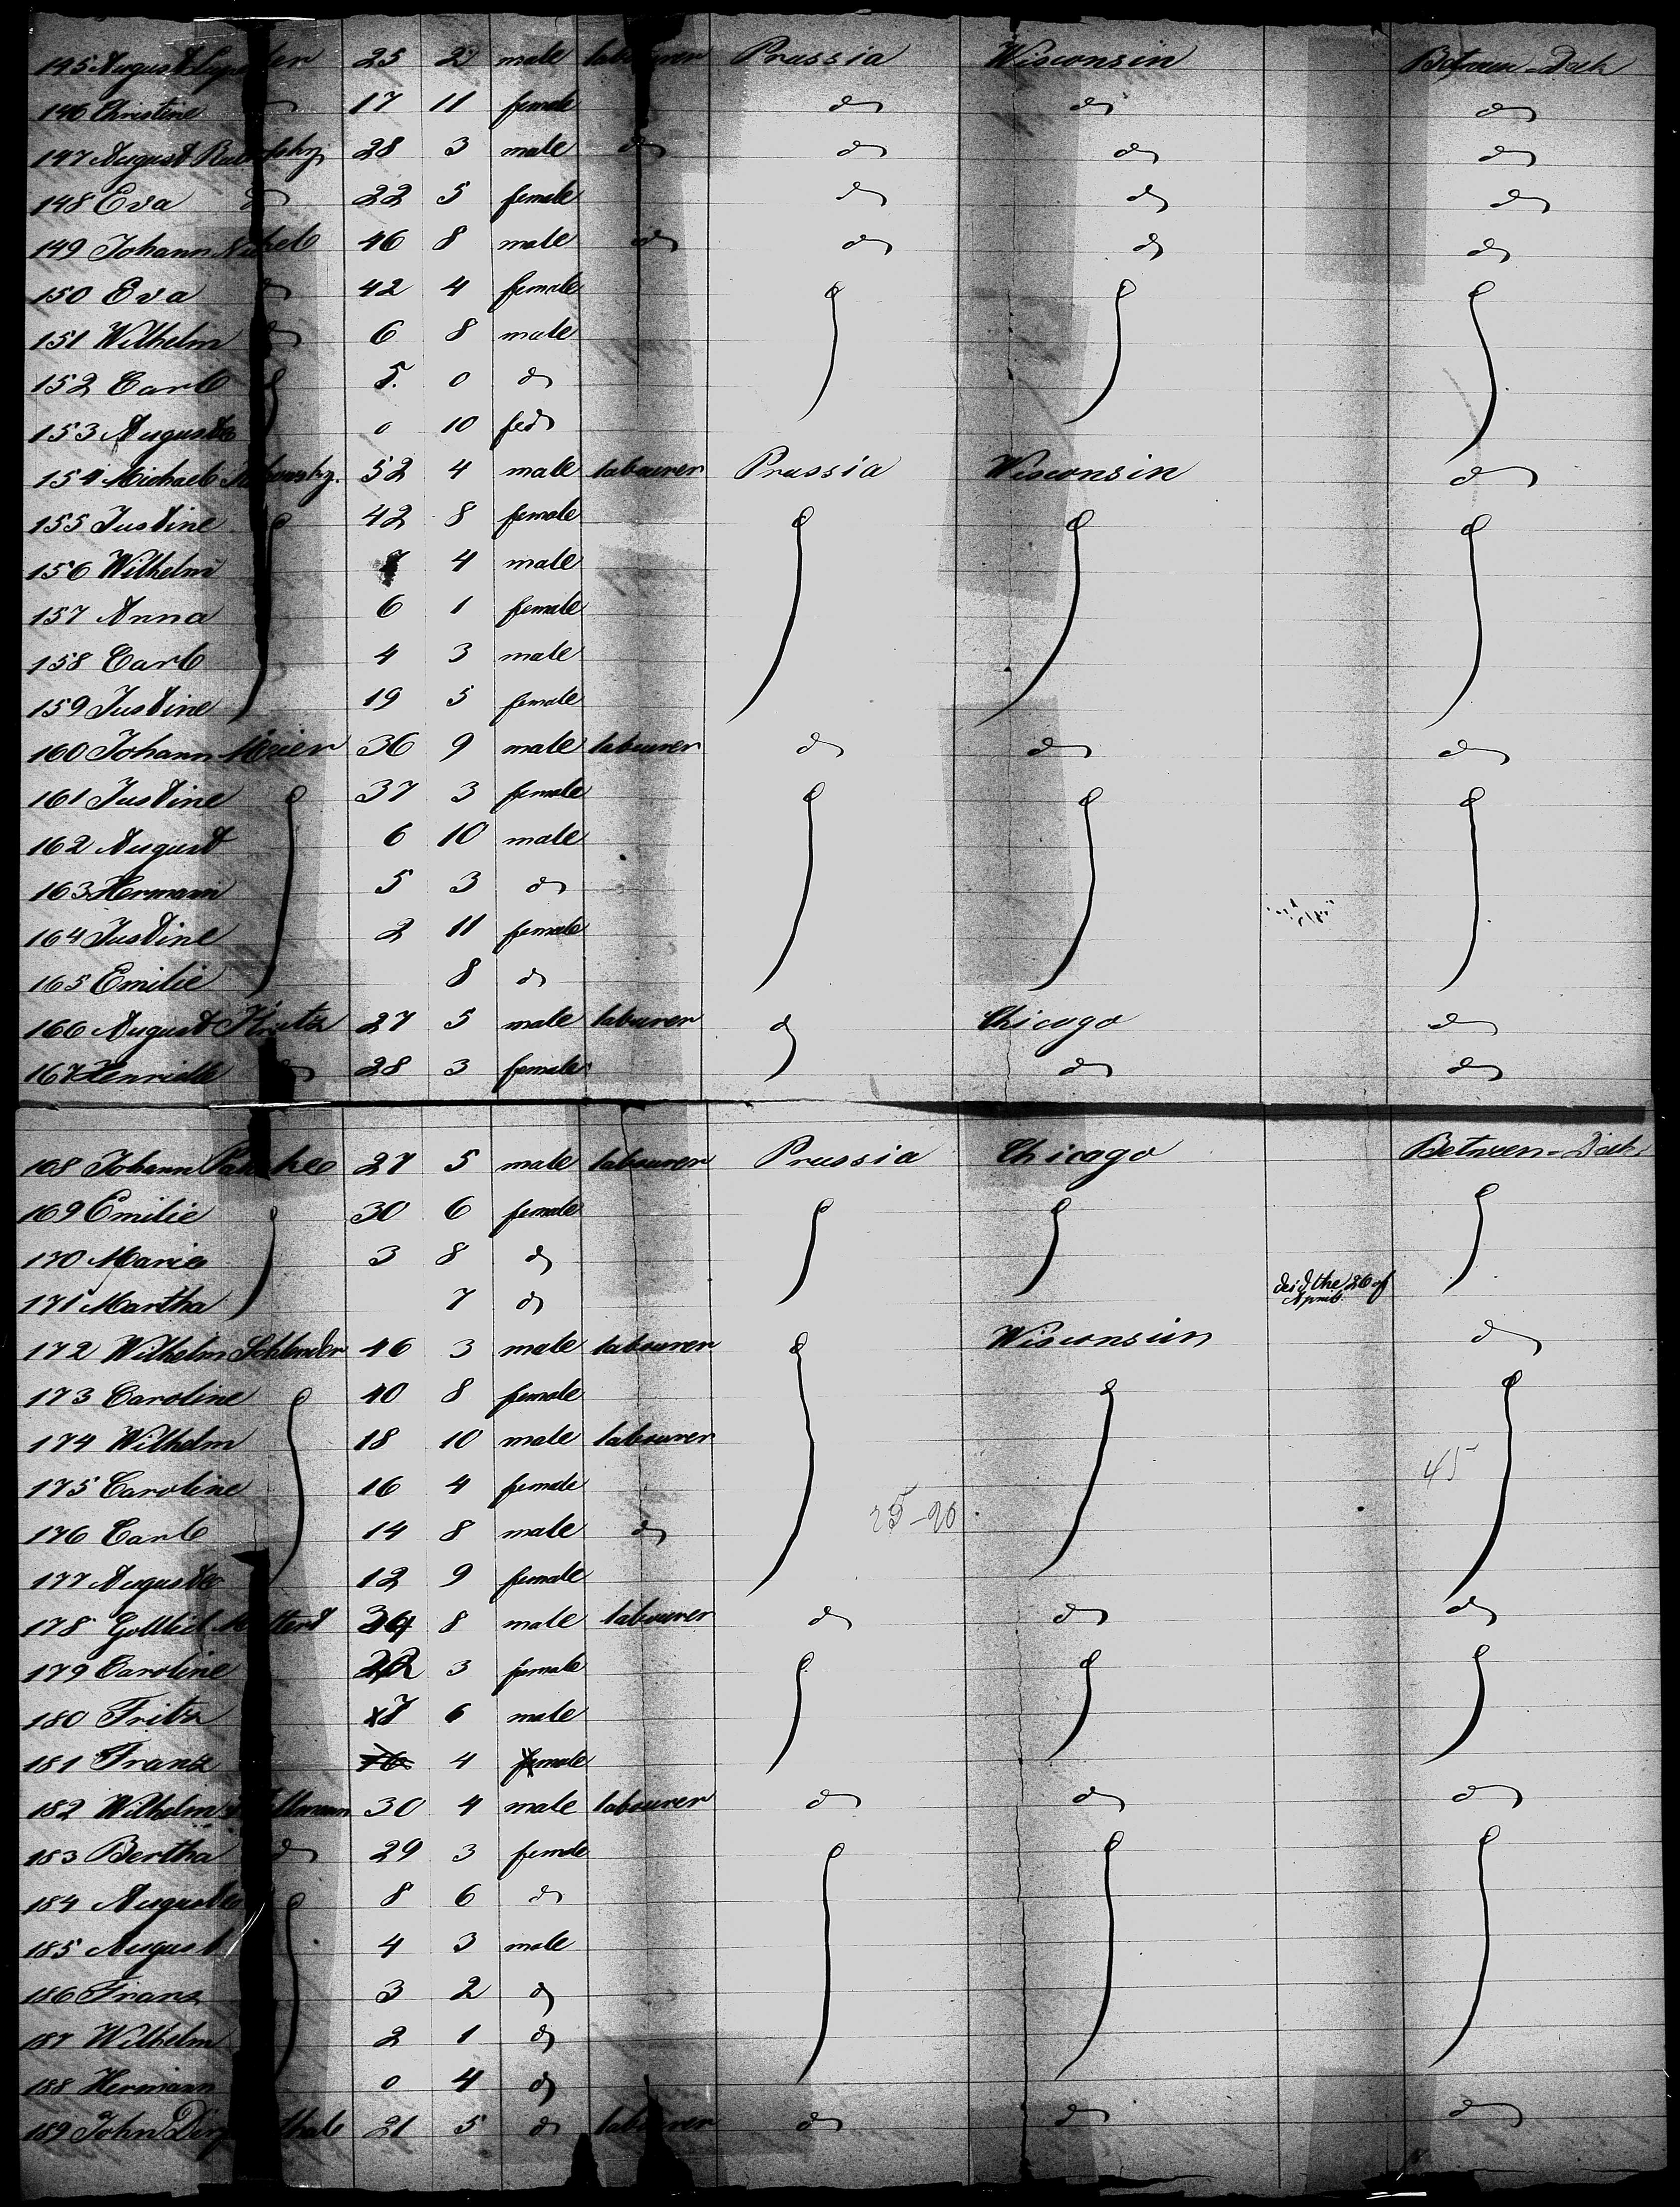 145 August 25 2 male labourer Prussia Wisconsin Between-Deck
146 Christine do 17 11 female do do do
147 August 28 3 male do do do do
148 Eva do 22 5 female do do do
149 Johann 46 8 male do do do do
150 Eva do 42 4 female do do do
151 Wilhelm do 6 8 male
152 Carl do 5. 0 do
153 Auguste 0 10 fedo
154 Michael 52 4 male labourer Prussia Wisconsin do
155 Justine do 42 8 female do do do
156 Wilhelm 4 male
157 Anna 6 1 female
158 Carl 4 3 male
159 Justine 19 5 female
160 Johann Meier 36 9 male labourer do do do
161 Justine do 37 3 female do do do
162 August 6 10 male
163 Hermann 5 3 do
164 Justine 2 11 female
165 Emilie 8 do
166 August 27 5 male labourer do Chicago do
167 Henriette do 28 3 female do do
168 Johann 27 5 male labourer Prussia Chicago Between-Deck
169 Emilie do 30 6 female do do do
170 Maria 3 8 do
171 Martha 7 do deid the 26 of April.
172 Wilhelm Schlender 46 3 male labourer do Wisconsin do
173 Caroline do 40 8 female do do
174 Wilhelm 18 10 male labourer
175 Caroline 16 4 female 45
176 Carl 14 8 male do 25-20
177 Auguste 12 9 female
178 Gottlieb 34 8 male labourer do do do
179 Caroline 22 3 female do do do
180 Fritz 7 6 male
181 Franz 4 male
182 Wilhelm 30 4 male labourer do do do
183 Bertha do 29 3 female do do do
184 Auguste do 8 6 do
185 August 4 3 male
186 Franz 3 2 do
187 Wilhelm 2 1 do
188 Hermann 0 4 do
189 John 21 5 do labourer do do do